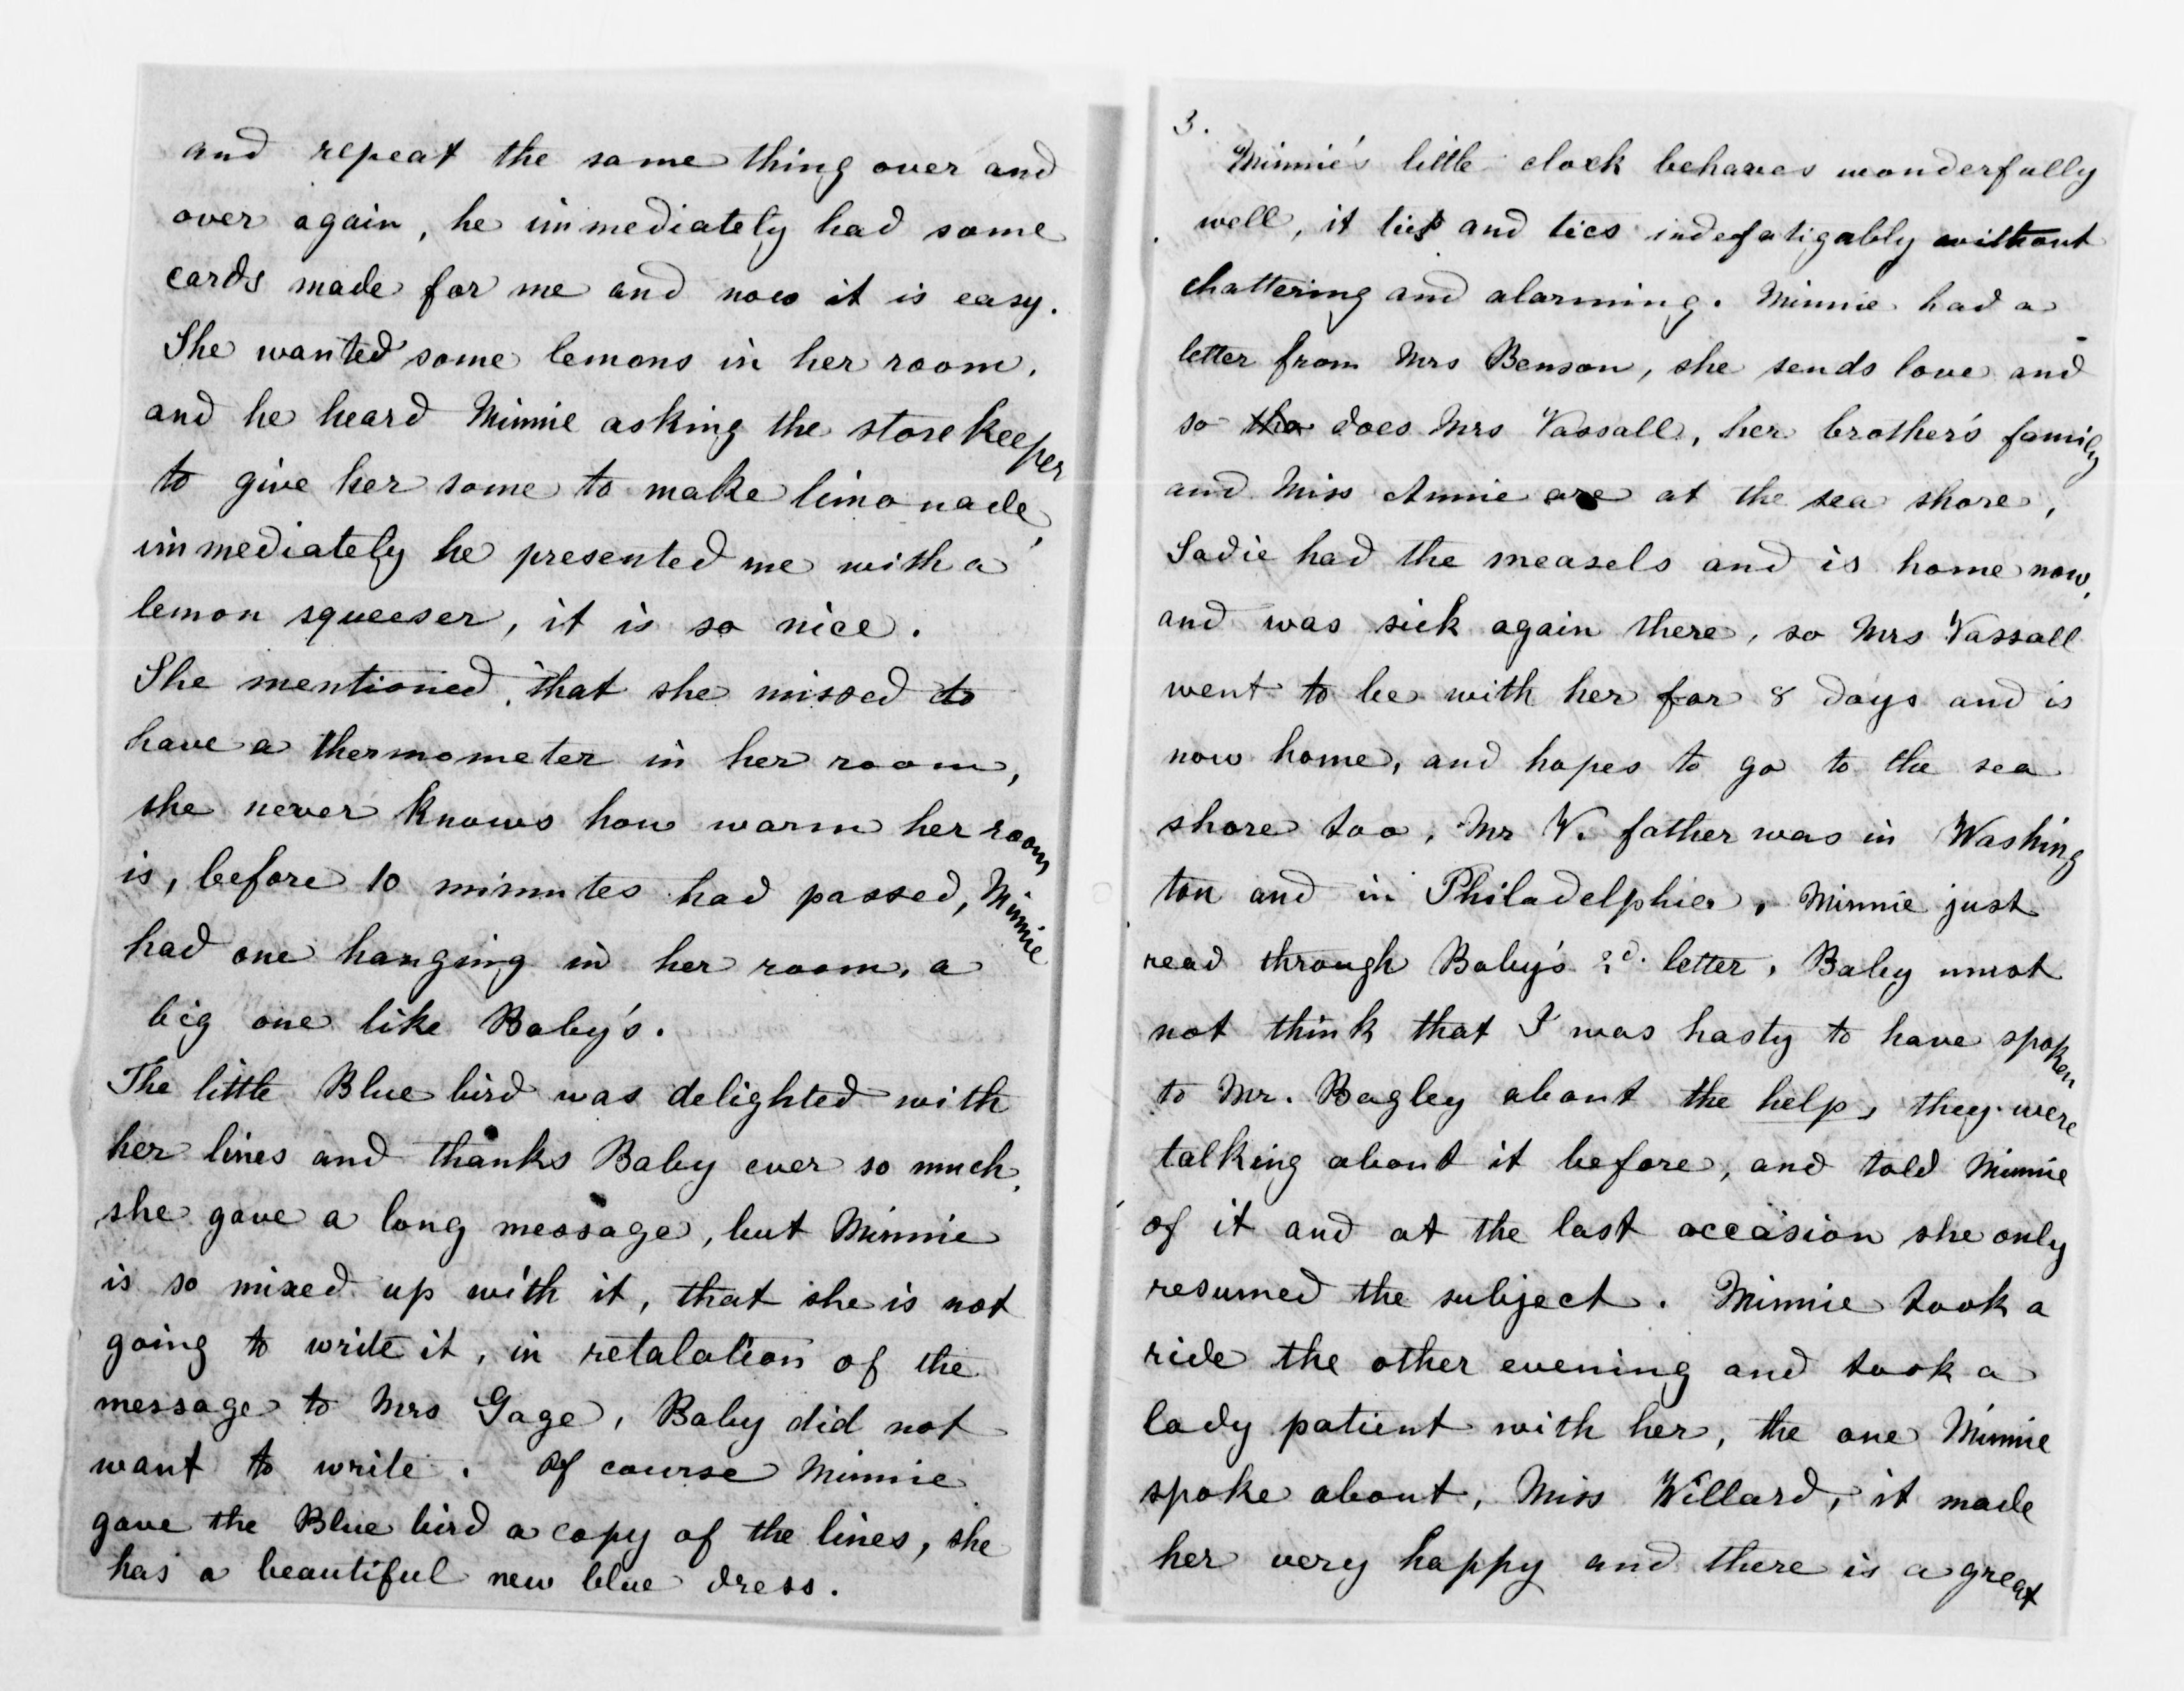 and repeat the same thing over and
over again, he immediately had some
cards made for me and now it is easy.
She wanted some lemons in her room,
and he heard Minnie asking the storekeeper
to give her some to make limonade,
immediately he presented me with a
lemon squeeser, it is so nice.
She mentioned, that she missed to
have a thermometer in her room,
she never knows how warm her room
is, before 10 minutes had passed, Minnie
had one hanging in her room, a
big one like Baby's.
The little Blue bird was delighted with
her lines and thanks Baby ever so much,
she gave a long message, but Minnie
is so mixed up with it, that she is not
going to write it, in retalation of the
message to Mrs Gage, Baby did not
want to write. Of course Minnie
gave the Blue bird a copy of the lines, she
has a beautiful new blue dress.
3.
Minnie's little clock behaves wonderfully
well, it tics and tics indefatigably without
chattering and alarming. Minnie had a
letter from Mrs Benson, she sends love and
so tho does Mrs Vassall, her brother's family
and Miss Annie are at the sea shore,
Sadie had the measels and is home now,
and was sick again there, so Mrs Vassall
went to be with her for 8 days and is
now home, and hopes to go to the sea
shore too, Mr V. father was in Washing
ton and in Philadelphia, Minnie just
read through Baby's 2d. letter, Baby must
not think that I was hasty to have spoken
to Mr. Bagley about the help, they were
talking about it before, and told Minnie
of it and at the last occasion she only
resumed the subject. Minnie took a
ride the other evening and took a
lady patient with her, the one Minnie
spoke about, Miss Willard, it made
her very happy and there is a great